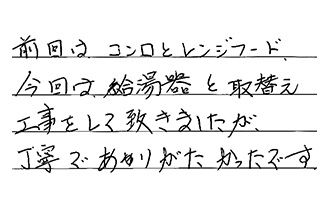 前回は、コンロとレンジフード、
今回は、給湯器と取替え
工事をして致きましたが、
丁寧でありがたかったです。